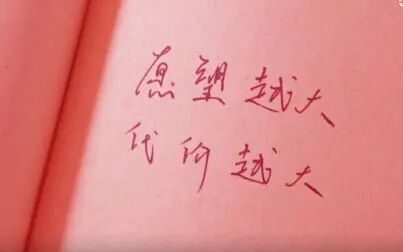 愿望越大
代价越大